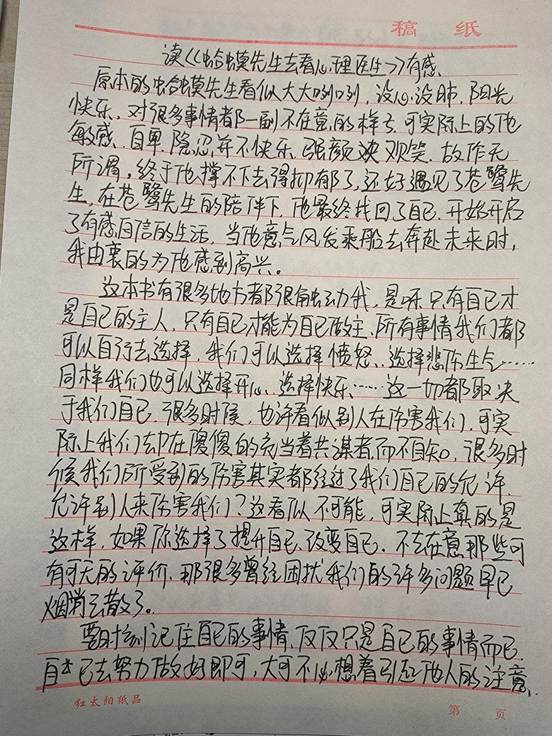 稿 纸
读《蛤蟆先生去看心理医生》有感.
原本的蛤蟆先生看似大大咧咧，没心没肺.阳光
快乐，对很多事情都一副不在意的样子.可实际上的他
敏感.自卑.隐忍.并不快乐.强颜欢笑.故作无
所谓。终于他撑不下去得抑郁了，还好遇见了苍鹭先
生，在苍鹭先生的陪伴下，他最终找回了自己.开始开启
了有感自信的生活，当他意气风发乘船去奔赴未来时，
我由衷的为他感到高兴。
这本书有很多地方都很触动我，是呀只有自己才
是自己的主人，只有自己才能为自己做主.所有事情我们都
可以自行去选择，我们可以选择愤怒、选择悲伤生气……
同样我们也可以选择开心、选择快乐、……这一切都取决
于我们自己.很多时候，也许看似别人在伤害我们，可实
际上我们却在傻傻的充当着共谋者而不自知。很多时
候我们所受到的伤害其实都经过了我们自己的允许.
允许别人来伤害我们？这看似不可能，可实际上真的是
这样，如果你选择了提升自己.改变自己.不去在意那些可
有可无的评价，那很多曾经困扰我们的许多问题早已
烟消云散了。
要时刻记住自己的事情，仅仅只是自己的事情而已.
自己去努力做好即可，大可不必想着引起他人的注意，
红太阳纸品 第 页